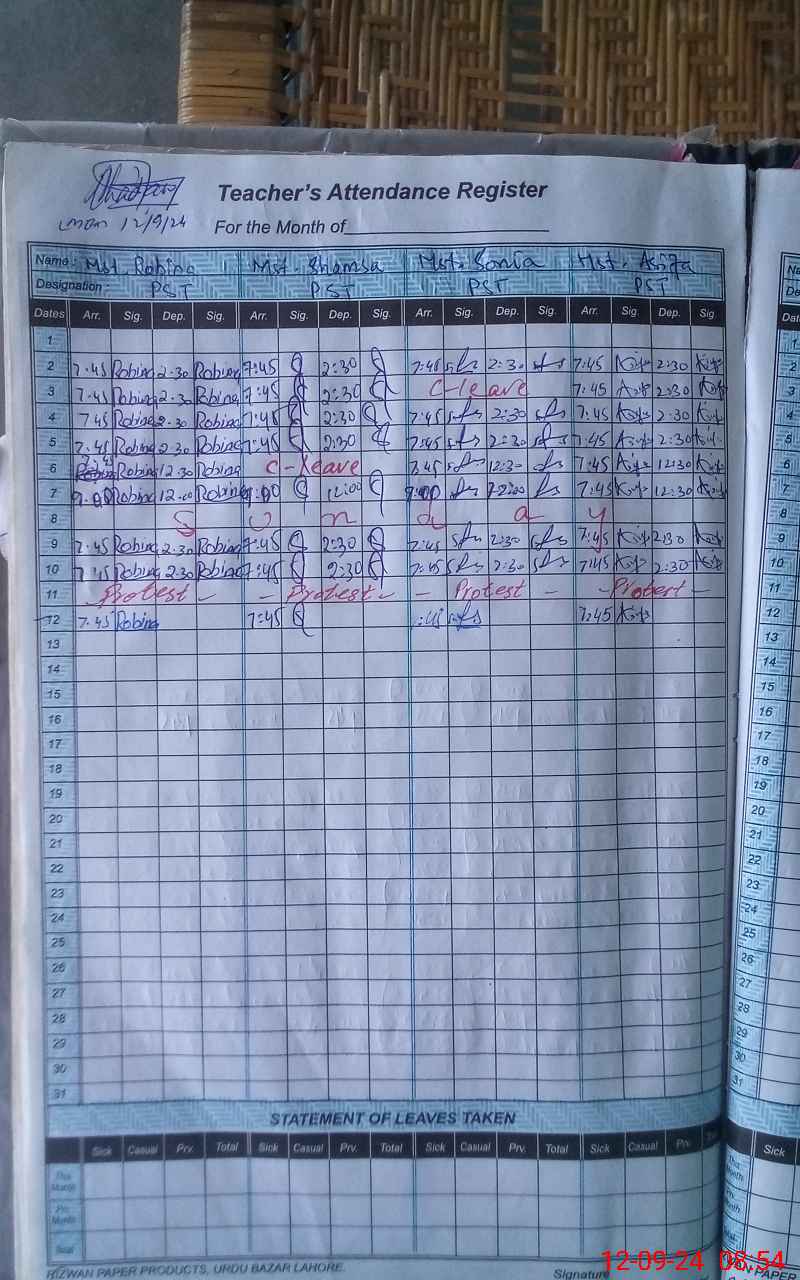 mon 12/9/24
Teacher's Attendance Register
For the Month of
Name: Mst. Robina Mst. Shamsa Mst. Sonia Mst. Asifa
Designation PST PST PST PST
Dates Arr. Sig. Dep. Sig. Arr. Sig. Dep. Sig. Arr. Sig. Dep. Sig. Arr. Sig Dep. Sig
1
2 7.45 Robina 2.30 Robina 7:45 2:30 7:45 2:30 7:45 2:30
3 7.45 Robina 2.30 Robina 7:45 2:30 C-leave 7:45 2:30
4 7.45 Robina 2.30 Robina 7:45 2:30 7:45 2:30 7:45 2:30
5 7.45 Robina 2.30 Robina 7:45 2:30 7:45 2:30 7:45 2:30
6 7.45 Robina 12.30 Robina C-leave 7:45 12:30 7:45 12:30
7 Robina 12.00 Robina 12:00 7:45 12:30
8 S u n d a y
9 7.45 Robina 2.30 Robina 7:45 2:30 7:45 2:30 7:45 2:30
10 7.45 Robina 2.30 Robina 7:45 2:30 7:45 2:30 7:45 2:30
11 Protest - - Protest - - Protest - - Protest -
12 7.45 Robina 7:45 :45 7:45
13
14
15
16
17
18
19
20
21
22
23
24
25
26
27
28
29
30
31
STATEMENT OF LEAVES TAKEN
Sick Casual Prv. Total Sick Casual Prv. Total Sick Casual Prv. Total Sick Casual Prv. Sick
This Month
Prv. Month
Total
RIZWAN PAPER PRODUCTS, URDU BAZAR LAHORE. Signature
12-09-24 08:54